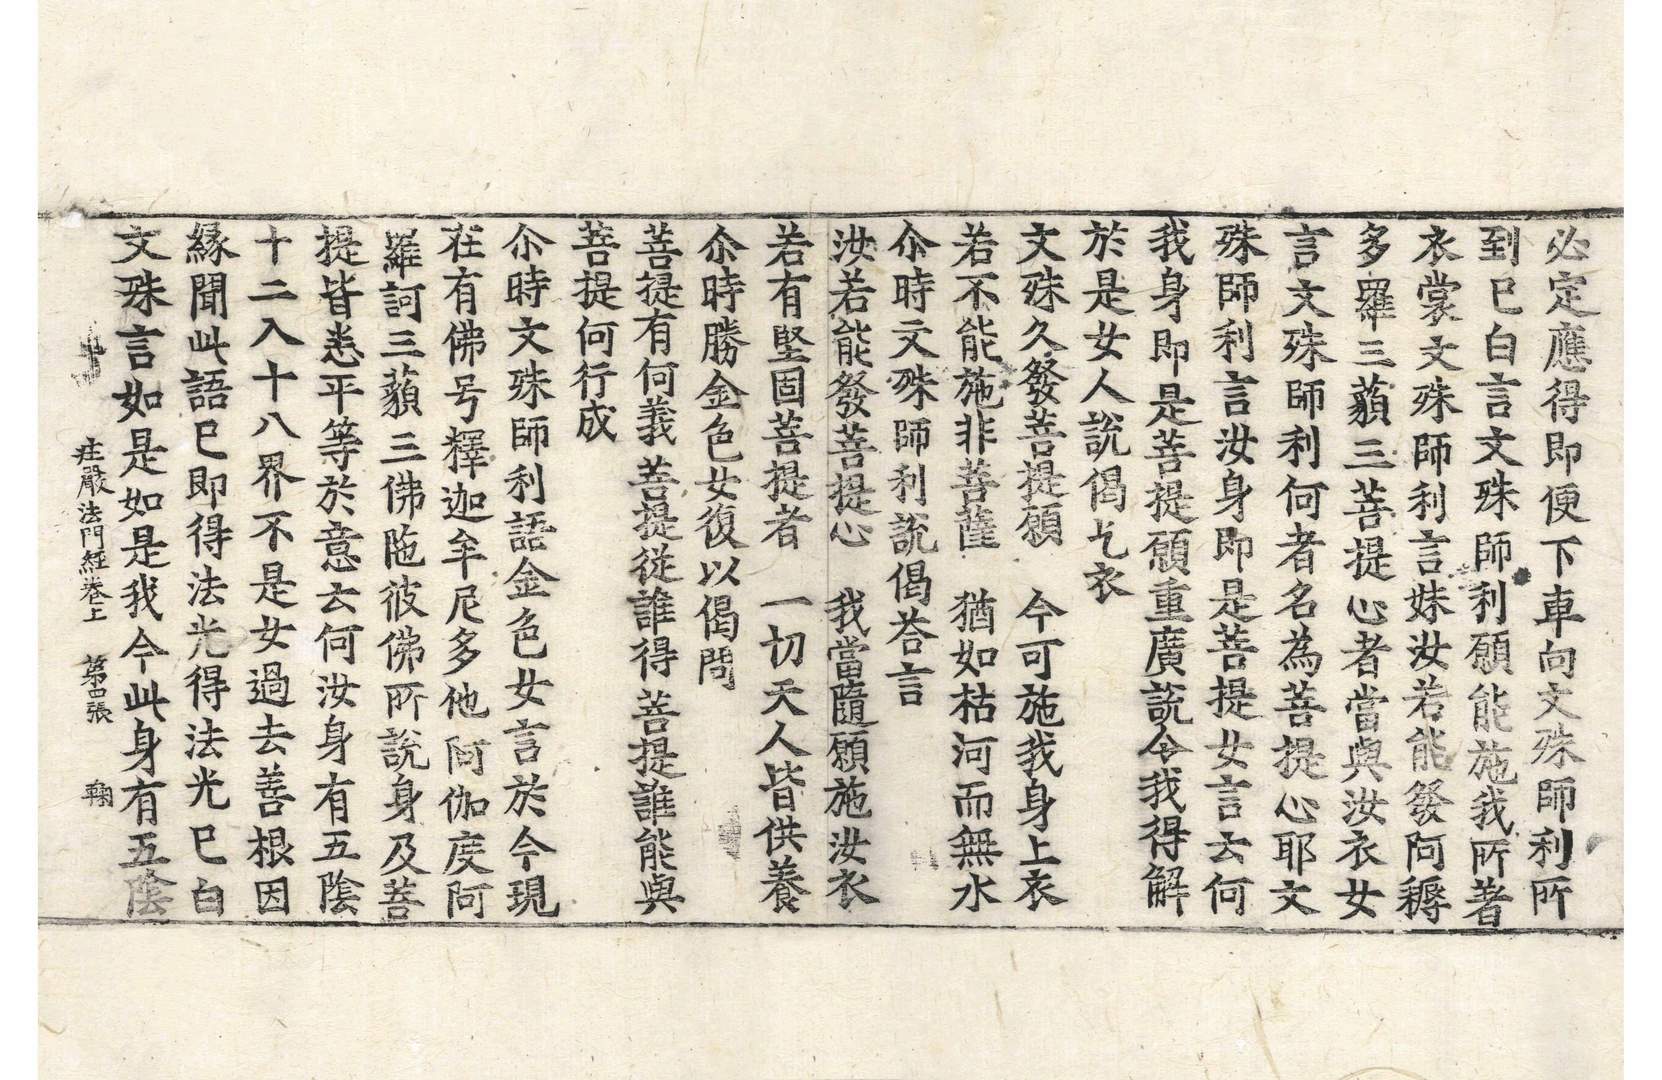 必定應得即便下車向文殊師利所
到已白言文殊師利願能施我所著
衣裳文殊師利言妹汝若能發阿耨
多羅三藐三菩提心者當與汝衣女
言文殊師利何者名為菩提心耶文
殊師利言汝身即是菩提女言云何
我身即是菩提願重廣說令我得解
於是女人說偈乞衣
文殊久發菩提願　今可施我身上衣
若不能施非菩薩　猶如枯河而無水
尒時文殊師利說偈荅言
汝若能發菩提心　我當隨願施汝衣
若有堅固菩提者　一切天人皆供養
尒時勝金色女復以偈問
菩提有何義　菩提從誰得　菩提誰能與
菩提何行成
尒時文殊師利語金色女言於今現
在有佛号釋迦牟尼多他阿伽度阿
羅訶三藐三佛陁彼佛所說身及菩
提皆悉平等於意云何汝身有五陰
十二入十八界不是女過去善根因
緣聞此語已即得法光得法光已白
文殊言如是如是我今此身有五陰
庄嚴法門經卷上　第四張　鞠